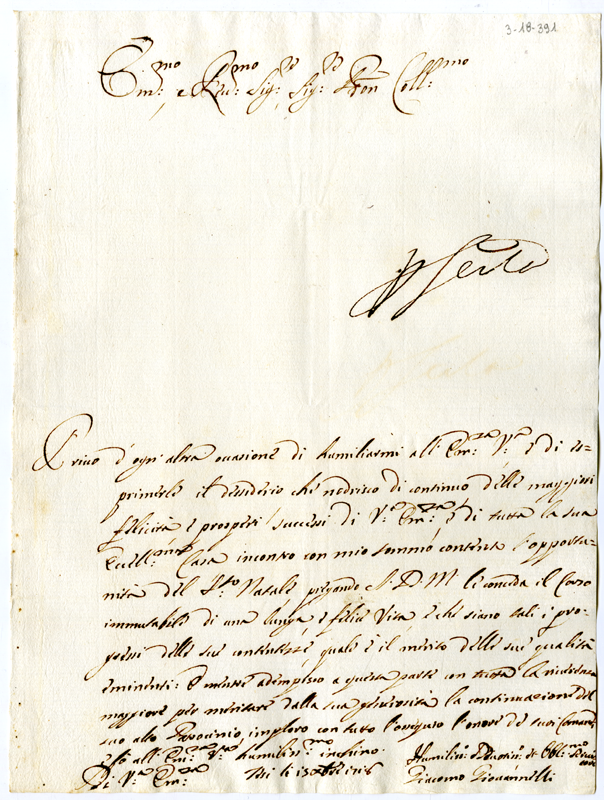 3-18-391
Em:mo e Rev:mo Sig:r Sig:r Pron Coll:mo
Privo d'ogni altra occasione di humiliarmi all' Em:za V:ra e di es=
primerle il desiderio che nodrisco di continuo delle maggiori
felicità e prosperi successi di V:ra Em:za e di tutta la sua
Eccell:ma Casa incontro con mio sommo contento l'opportu=
nità del S:to Natale pregando S. D. M. le conceda il Corso
immutabile di una lunga, e felice Vita e che siano tali i pro=
gressi delle sue contentezze quale è il merito delle sue qualità
eminenti: E mentre adempisco a questa parte con tutta la riverenza
maggiore per meritare dalla sua generosità la continuazione del
suo alto Patrocinio, imploro con tutto l'ossequio l'onore de suoi Comandi,
e fo all' Em:za V:ra humiliss:mo inchino.
Di V:ra Em:za
Humiliss:o Devotiss:o et Obblig:mo
Giacomo Giovannelli